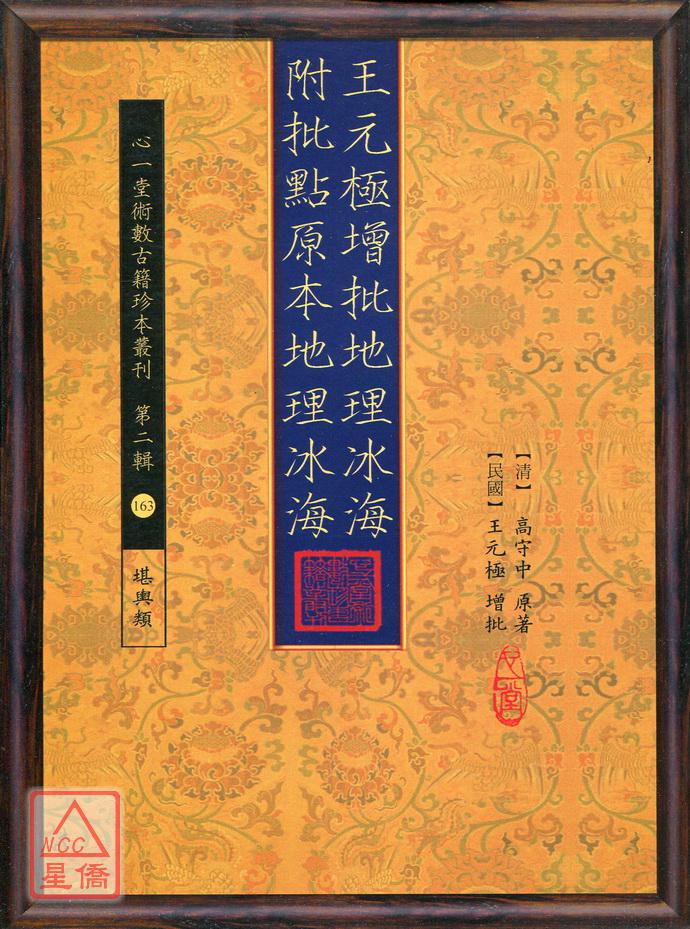 王元極增批地理冰海
附批點原本地理冰海
【清】 高守中 原著
【民國】 王元極 增批
心一堂術數古籍珍本叢刊 第二輯
163
堪輿類
心一堂
NCC
星僑